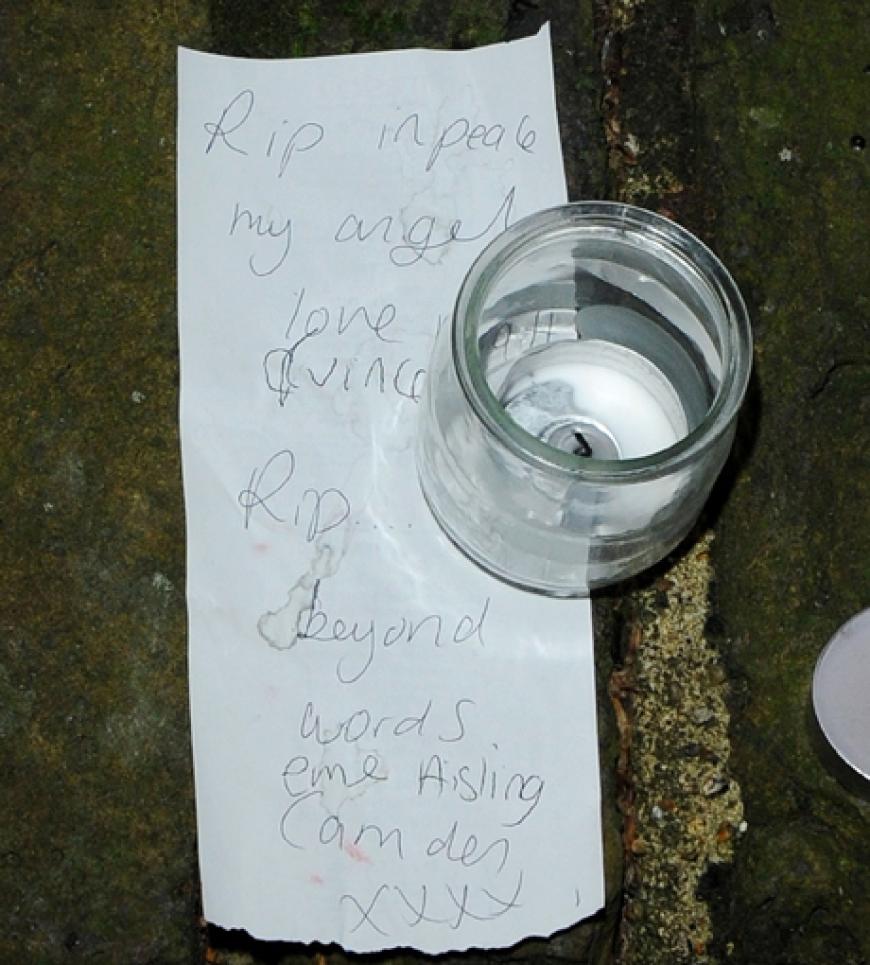 Rip in peace
my angel
love
& vince
Rip....
beyond
words.
eme Aisling
Camden
xxxx